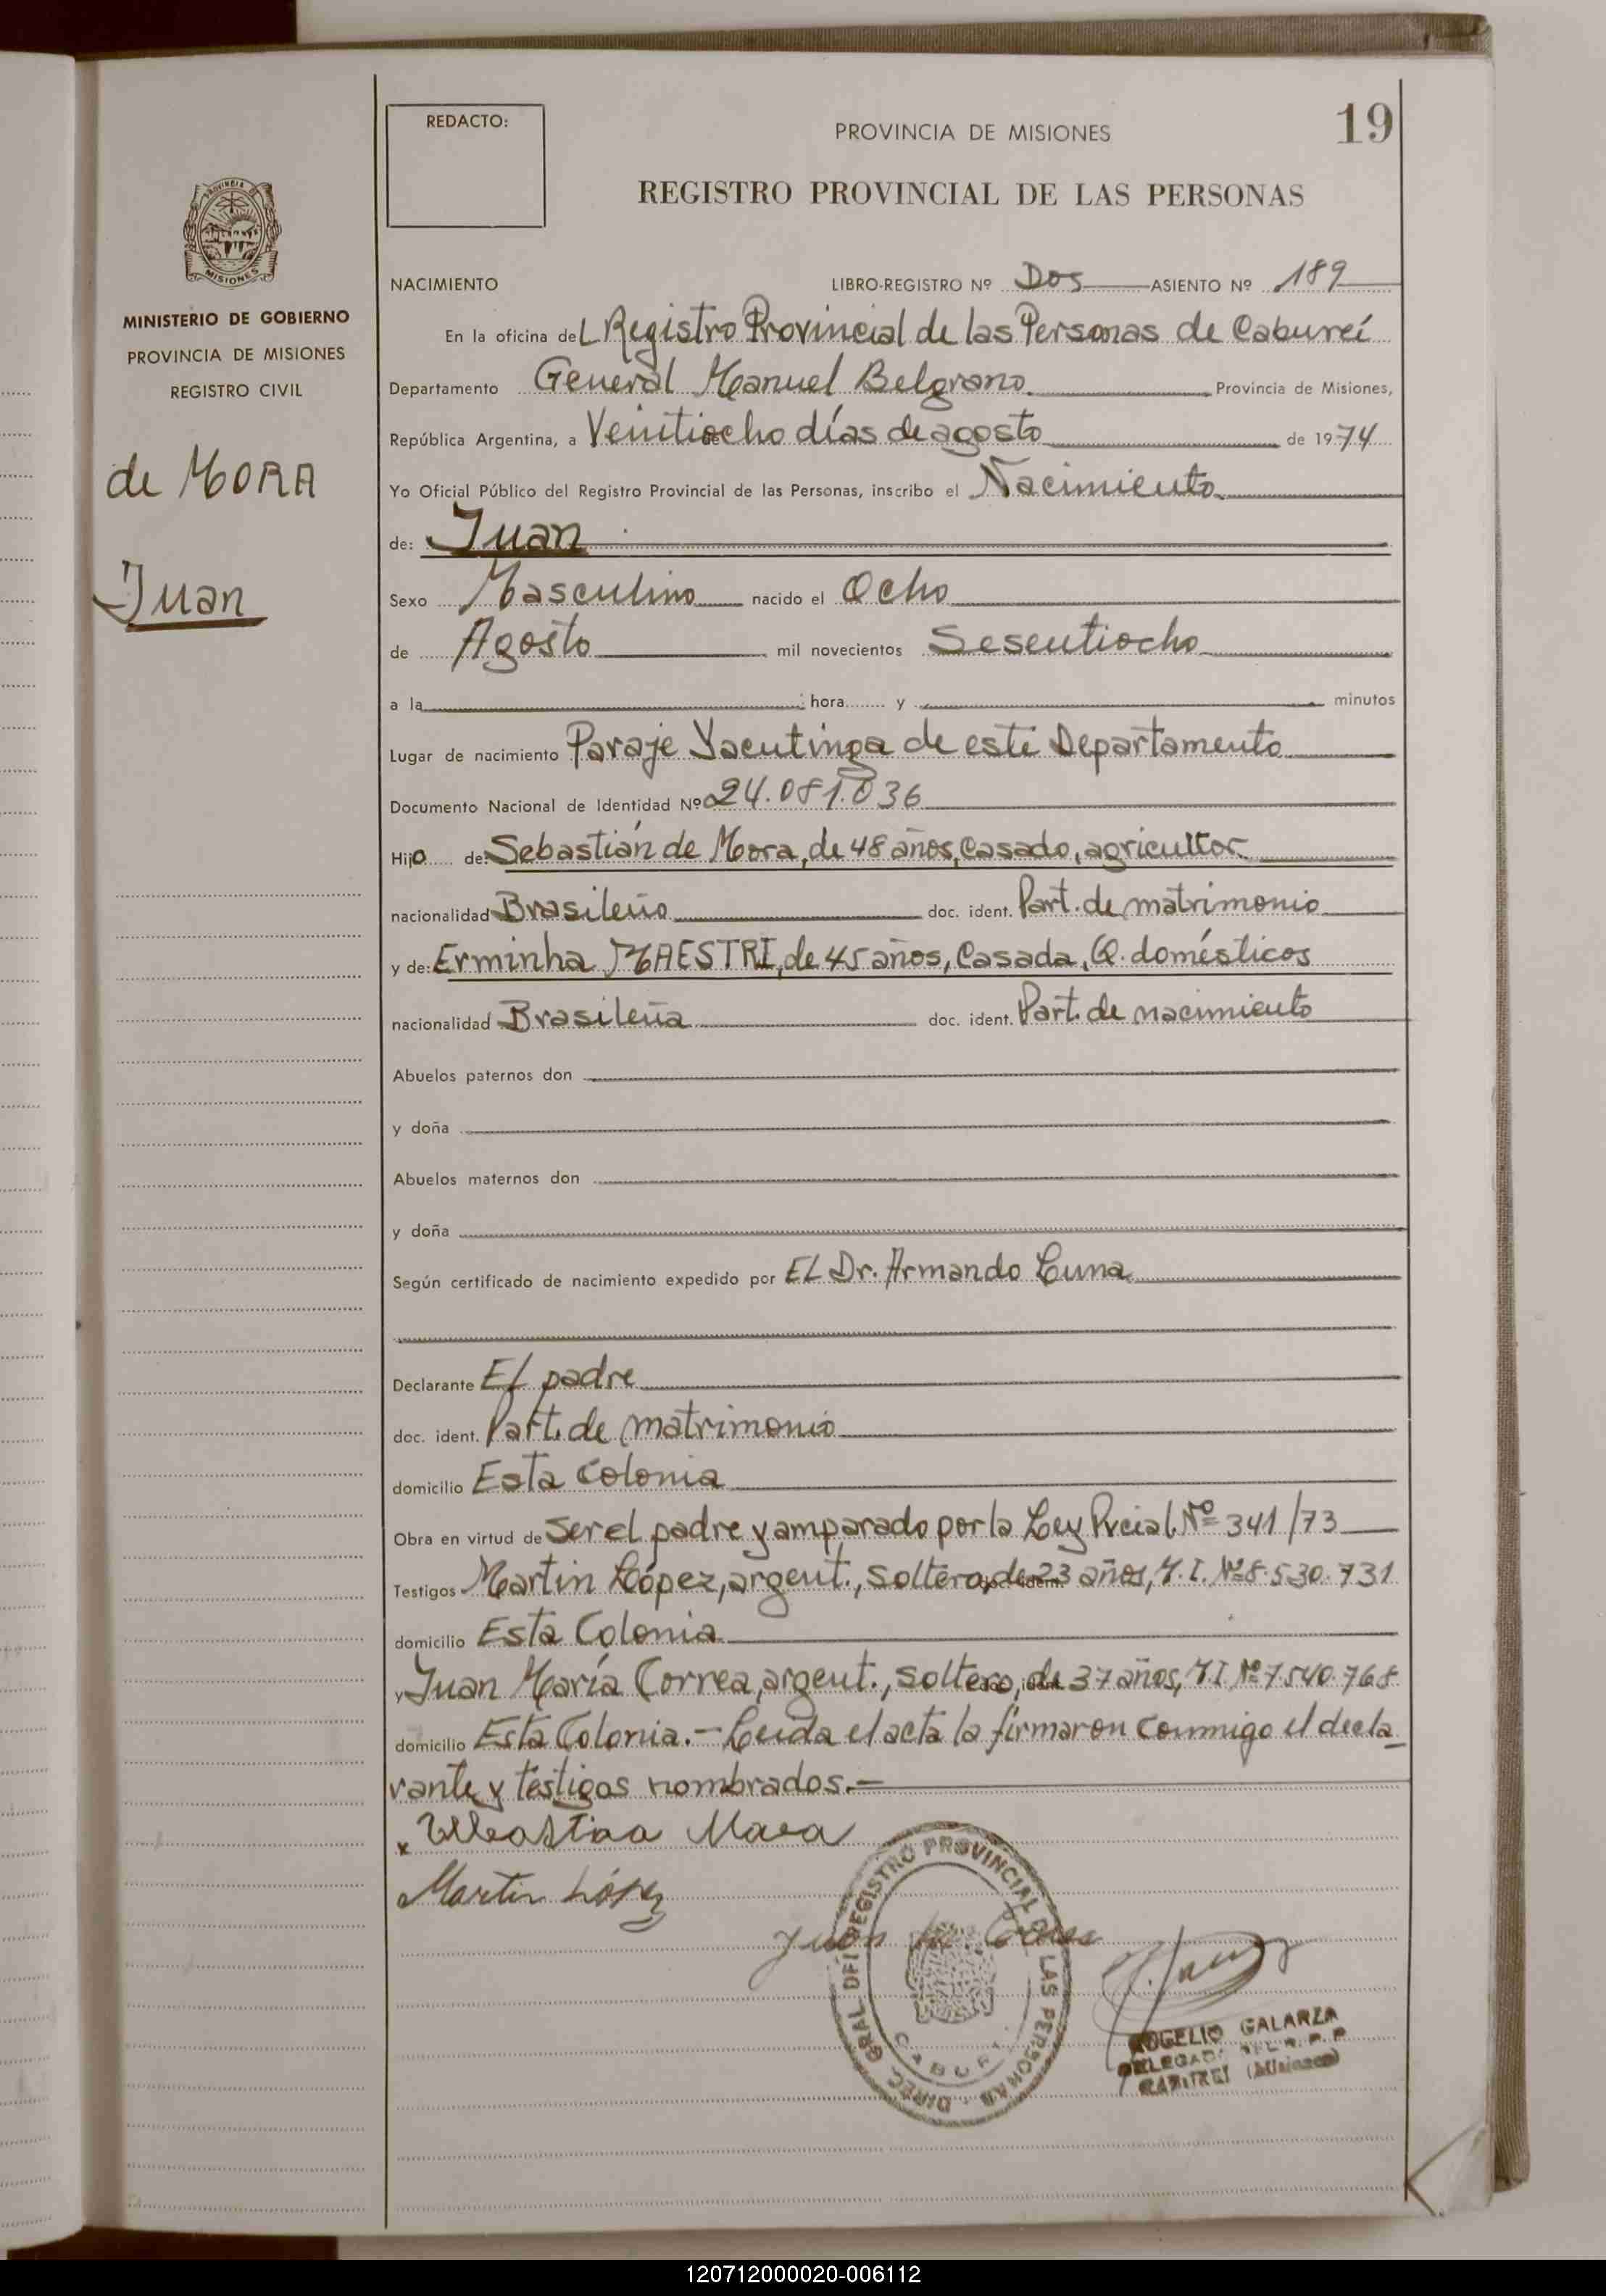 19
REDACTO:
PROVINCIA DE MISIONES
REGISTRO PROVINCIAL DE LAS PERSONAS
PROVINCIA DE
MISIONES
MINISTERIO DE GOBIERNO
PROVINCIA DE MISIONES
REGISTRO CIVIL
de MORA
Juan
NACIMIENTO LIBRO-REGISTRO Nº Dos ASIENTO Nº 189
En la oficina deL Registro Provincial de las Personas de Cabureí
Departamento General Manuel Belgrano Provincia de Misiones,
República Argentina, a Veintiocho días de agosto de 1974
Yo Oficial Público del Registro Provincial de las Personas, inscribo el Nacimiento
de: Juan
Sexo Masculino nacido el Ocho
de Agosto mil novecientos Sesentiocho
a la hora y minutos
Lugar de nacimiento Paraje Yacutinga de este Departamento
Documento Nacional de Identidad Nº 24.081.036
Hijo de: Sebastián de Mora, de 48 años, Casado, agricultor
nacionalidad Brasileño doc. ident. Part. de matrimonio
y de: Erminha MAESTRI, de 45 años, Casada, Q. domésticos
nacionalidad Brasileña doc. ident. Part. de nacimiento
Abuelos paternos don
y doña
Abuelos maternos don
y doña
Según certificado de nacimiento expedido por EL Dr. Armando Luna
Declarante El padre
doc. ident. Part. de matrimonio
domicilio Esta Colonia
Obra en virtud de ser el padre y amparado por la Ley Pvcial. Nº 341/73
Testigos Martin López, argent., soltero, de 23 años, M.I. Nº 8.530.731
domicilio Esta Colonia
y Juan María Correa, argent., soltero, de 37 años, M.I. Nº 7.540.768
domicilio Esta Colonia.- Leída el acta la firmaron conmigo el decla-
rante y testigos nombrados.-
x Sebastiao Mora
Martin López
Juan M. Correa
DIREC. GRAL. DEL REGISTRO PROVINCIAL DE LAS PERSONAS
ROGELIO GALARZA
DELEGADO DEL R.P.P.
CABUREI (Misiones)
120712000020-006112